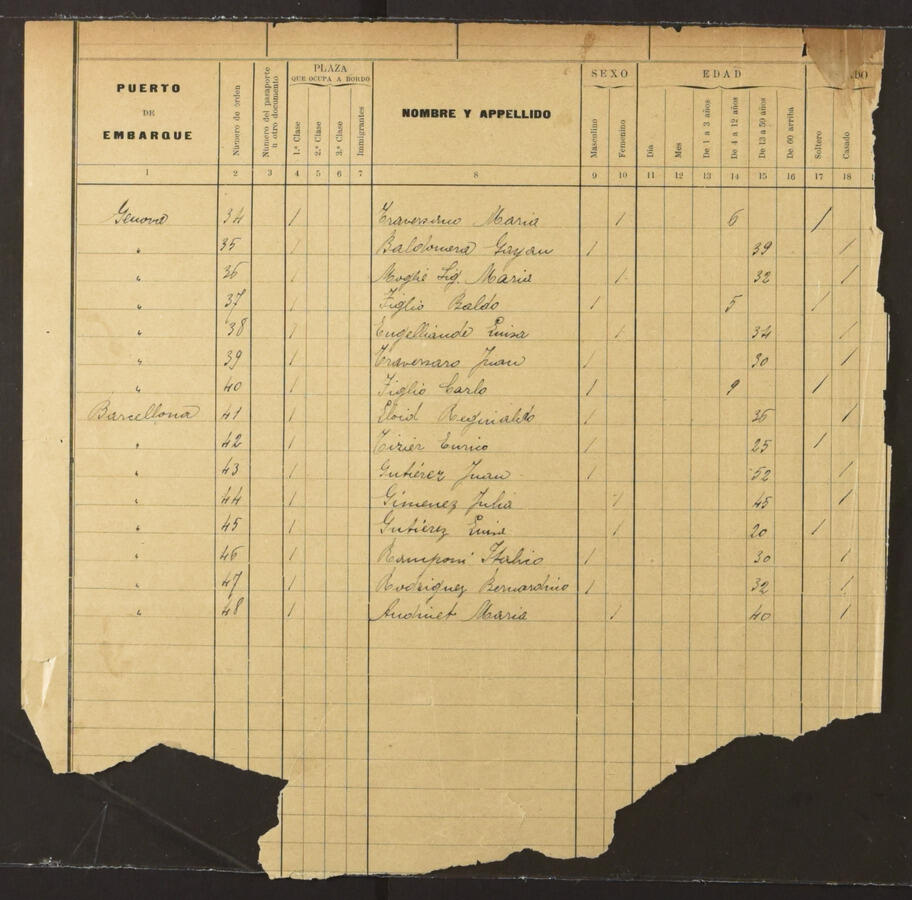 PUERTO DE EMBARQUE
Número de orden
Número del pasaporte u otro documento
PLAZA
QUE OCUPA A BORDO
1.ª Clase
2.ª Clase
3.ª Clase
Inmigrantes
NOMBRE Y APPELLIDO
SEXO
Masculino
Femenino
EDAD
Día
Mes
De 1 a 3 años
De 4 a 12 años
De 13 a 59 años
De 60 arriba
DO
Soltero
Casado
1 2 3 4 5 6 7 8 9 10 11 12 13 14 15 16 17 18
Genova 34 / Maria / 6 /
" 35 / Baldomera Gayan / 39 /
" 36 / Moglie Sig. Maria / 32 /
" 37 / Figlio Baldo / 5 /
" 38 / Luisa / 34 /
" 39 / Traversaro Juan / 30 /
" 40 / Figlio Carlo / 9 /
Barcellona 41 / Reginaldo / 36 /
" 42 / Tizier Enrico / 25 /
" 43 / Gutiérez Juan / 52 /
" 44 / Gimenez Julia / 45 /
" 45 / Gutiérez Luisa / 20 /
" 46 / Ramponi Italico / 30 /
" 47 / Rodriguez Bernardino / 32 /
" 48 / Andinet Maria / 40 /